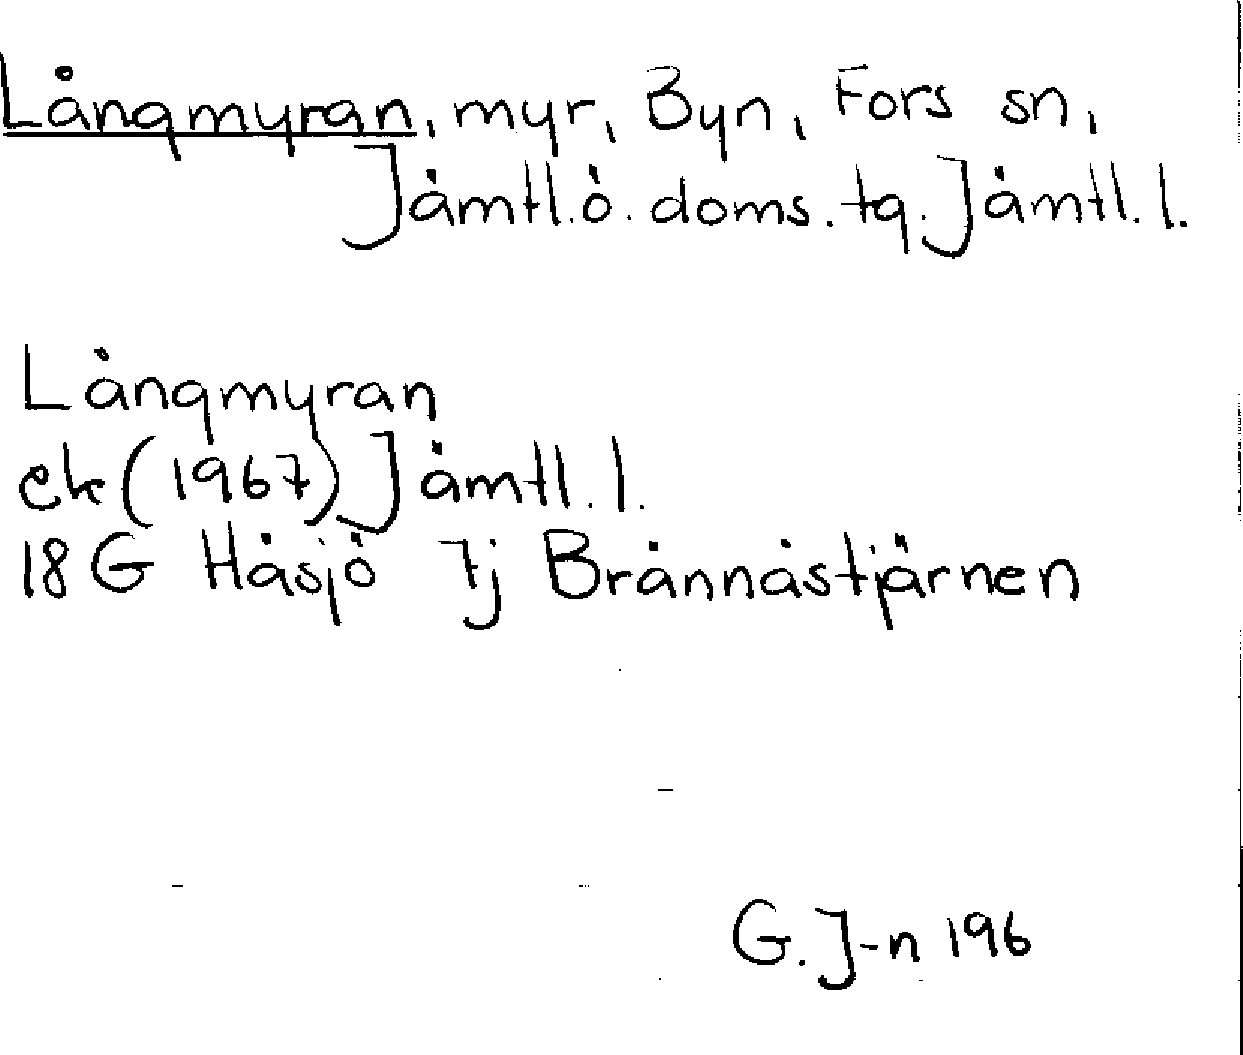 Långmyran, myr, Byn, Fors sn,
Jämtl.ö. doms. tg. Jämtl. l.
Långmyran
ek (1967) Jämtl. l.
18 G Håsjö 7j Brännåstjärnen
G. J-n 196